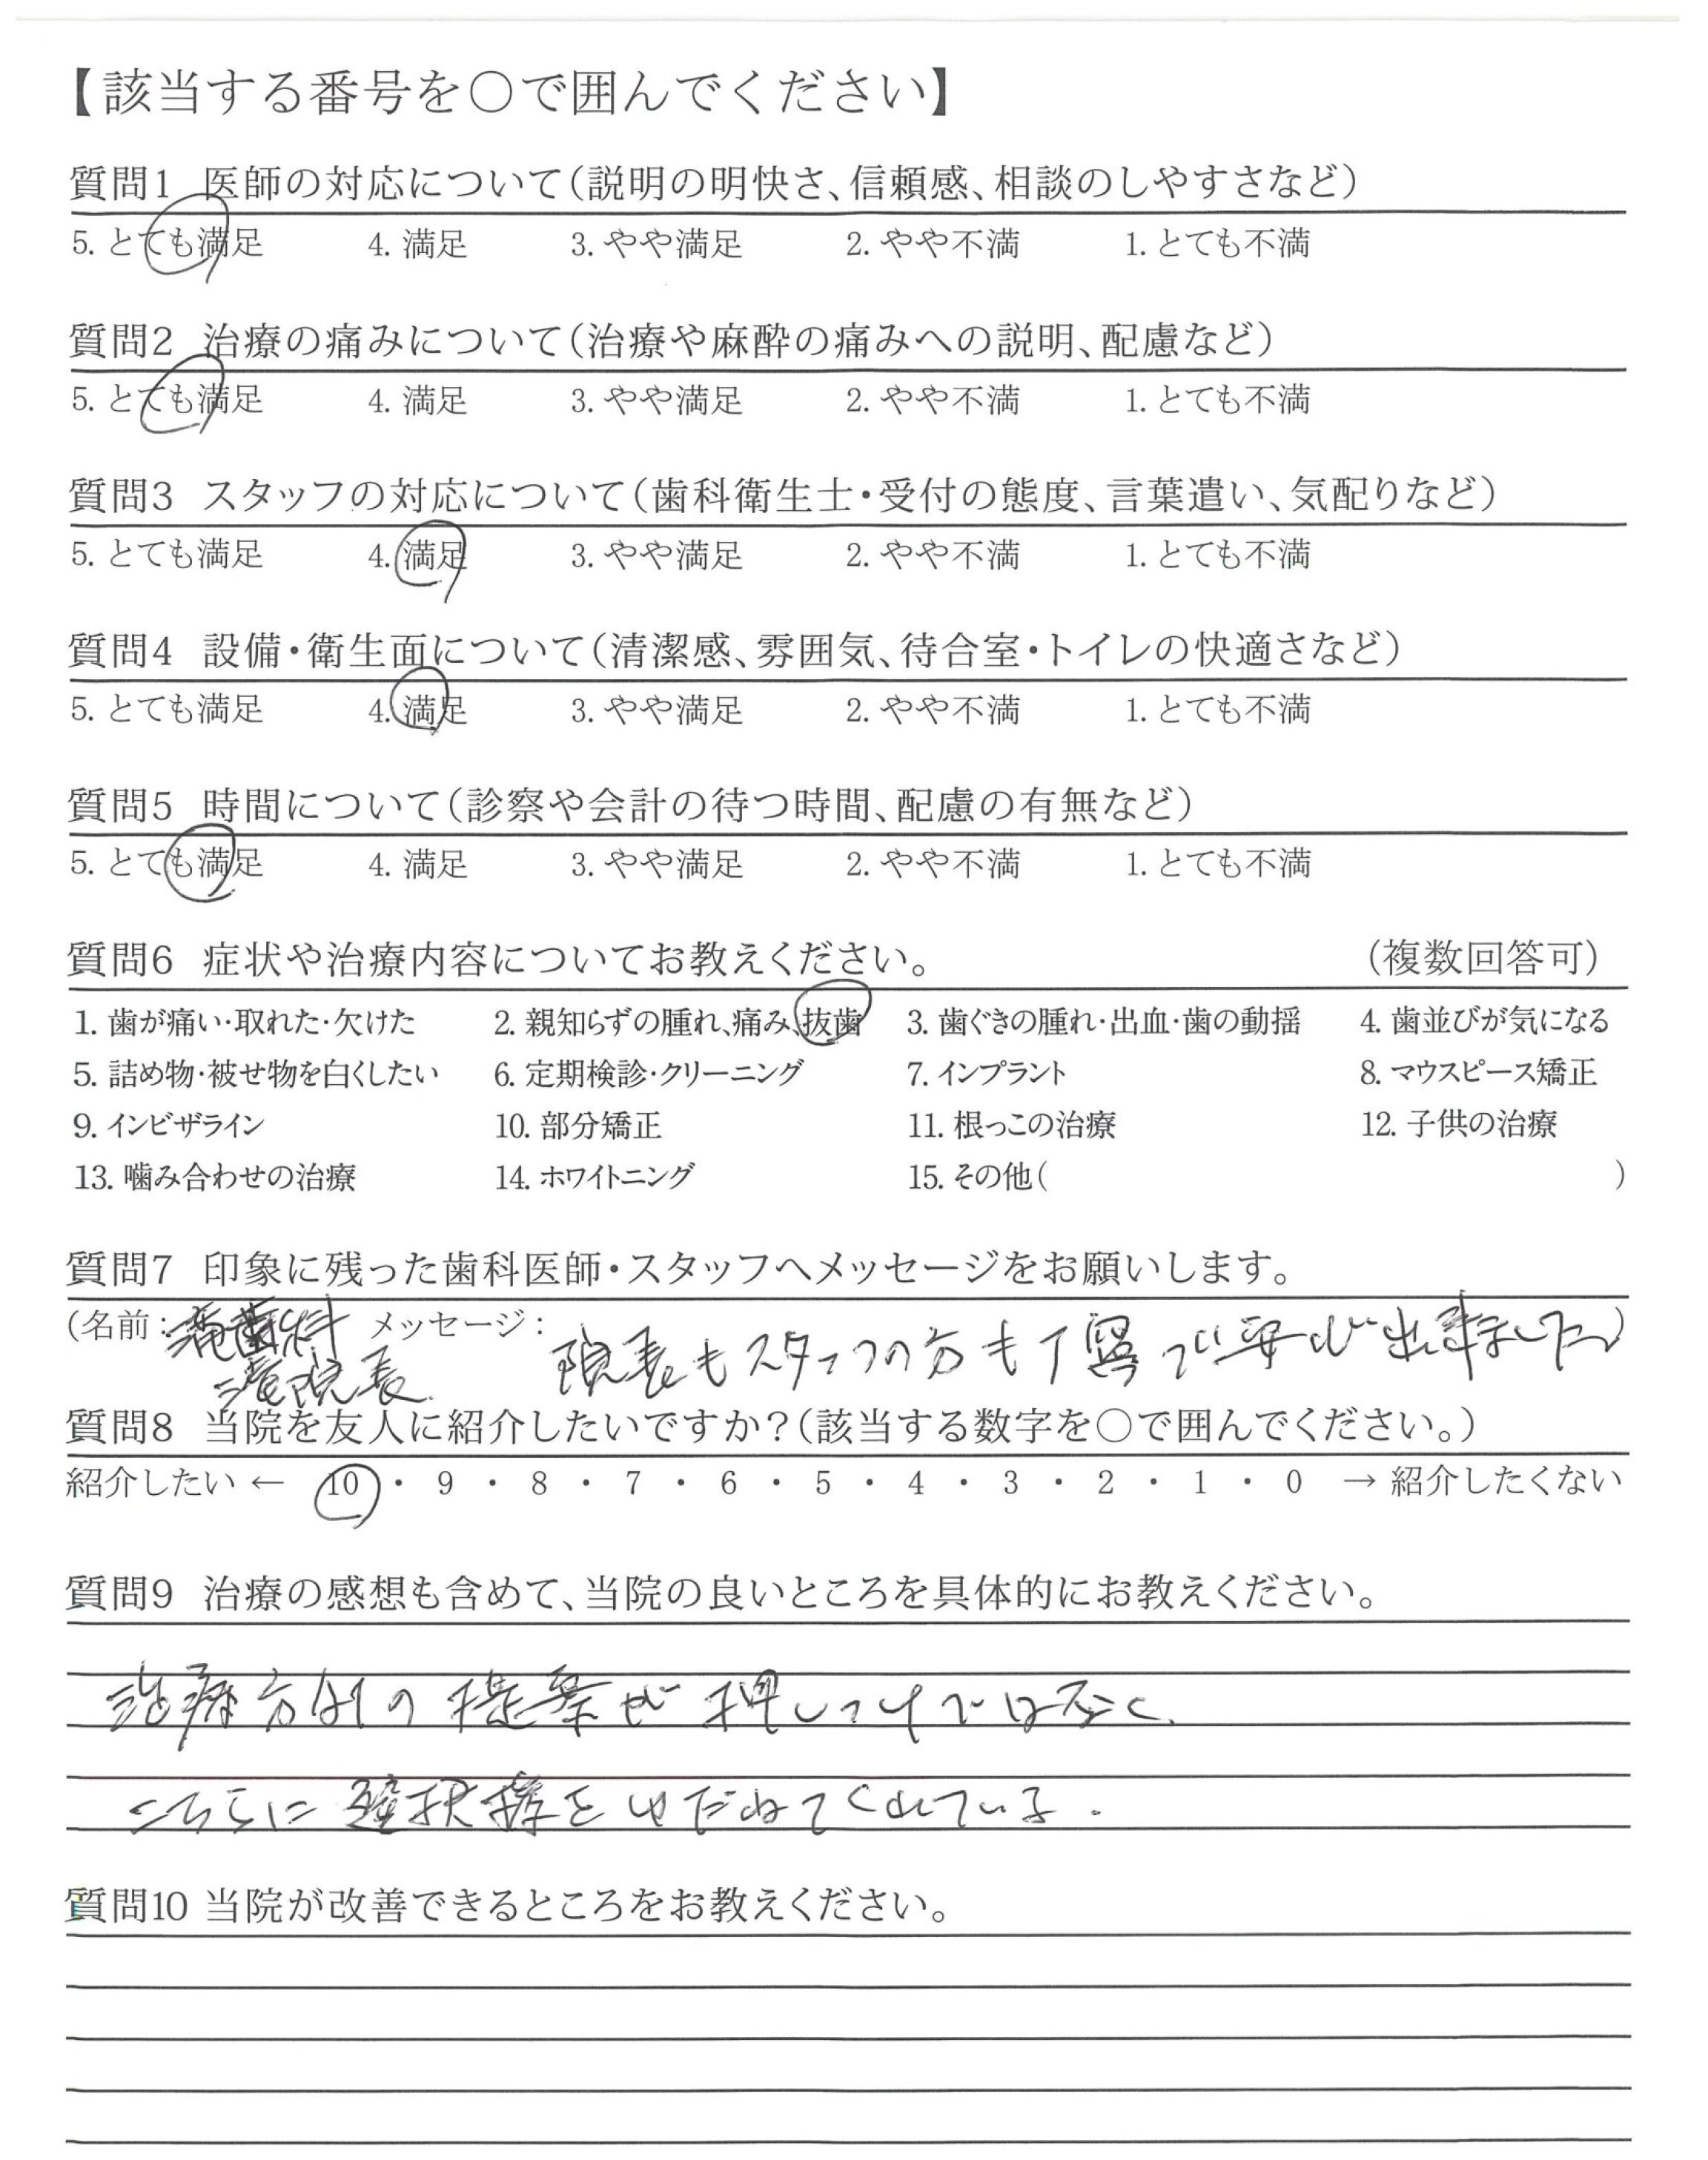 【該当する番号を○で囲んでください】
質問1 医師の対応について(説明の明快さ、信頼感、相談のしやすさなど)
5. とても満足 4. 満足 3. やや満足 2. やや不満 1. とても不満
質問2 治療の痛みについて(治療や麻酔の痛みへの説明、配慮など)
5. とても満足 4. 満足 3. やや満足 2. やや不満 1. とても不満
質問3 スタッフの対応について(歯科衛生士・受付の態度、言葉遣い、気配りなど)
5. とても満足 4. 満足 3. やや満足 2. やや不満 1. とても不満
質問4 設備・衛生面について(清潔感、雰囲気、待合室・トイレの快適さなど)
5. とても満足 4. 満足 3. やや満足 2. やや不満 1. とても不満
質問5 時間について(診察や会計の待つ時間、配慮の有無など)
5. とても満足 4. 満足 3. やや満足 2. やや不満 1. とても不満
質問6 症状や治療内容についてお教えください。 (複数回答可)
1. 歯が痛い・取れた・欠けた 2. 親知らずの腫れ、痛み、抜歯 3. 歯ぐきの腫れ・出血・歯の動揺 4. 歯並びが気になる
5. 詰め物・被せ物を白くしたい 6. 定期検診・クリーニング 7. インプラント 8. マウスピース矯正
9. インビザライン 10. 部分矯正 11. 根っこの治療 12. 子供の治療
13. 噛み合わせの治療 14. ホワイトニング 15. その他( )
質問7 印象に残った歯科医師・スタッフへメッセージをお願いします。
(名前: メッセージ: 院長もスタッフの方も丁寧で安心出来ました)
院長
質問8 当院を友人に紹介したいですか?(該当する数字を○で囲んでください。)
紹介したい ← 10 ・ 9 ・ 8 ・ 7 ・ 6 ・ 5 ・ 4 ・ 3 ・ 2 ・ 1 ・ 0 → 紹介したくない
質問9 治療の感想も含めて、当院の良いところを具体的にお教えください。
治療方針の提案が押しつけではなく、
こちらに選択権をゆだねてくれている.
質問10 当院が改善できるところをお教えください。